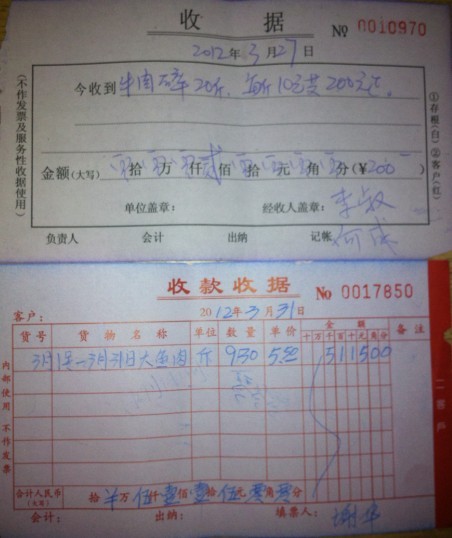 收据 № 0010970
2012年3月27日
今收到 牛肉碎20斤,每斤10元共200元正。
金额(大写) 拾 万 仟 贰佰 拾 元 角 分(¥200)
单位盖章: 经收人盖章:
负责人 会计 出纳 记帐
(不作发票及服务性收据使用)
①存根(白)②客户(红)
收款收据 № 0017850
客户: 2012年3月31日
货号 货物名称 单位 数量 单价 金额 备注
十万千百十元角分
3月1号-3月31日大鱼肉 斤 930 5.50 511500
合计人民币(大写) 拾 万伍仟壹佰壹拾伍元零角零分
会计: 出纳: 填票人: 谢华
内部使用 不作发票
二客户